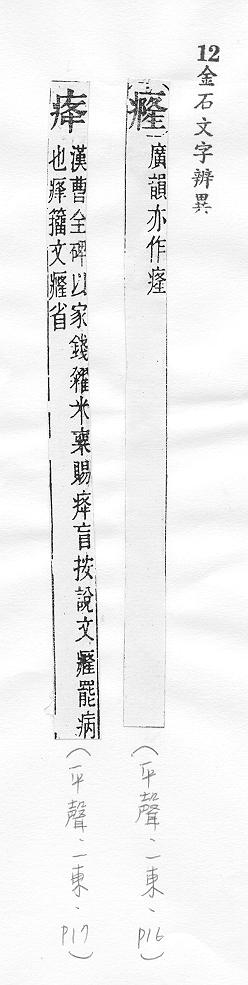 12金石文字辨異
癃
廣韻亦作𤸇
（平聲、一東、p16）
㾏
漢曹全碑以家錢糴米粟賜㾏盲按說文癃罷病
也㾏籀文癃省
（平聲、一東、p17）